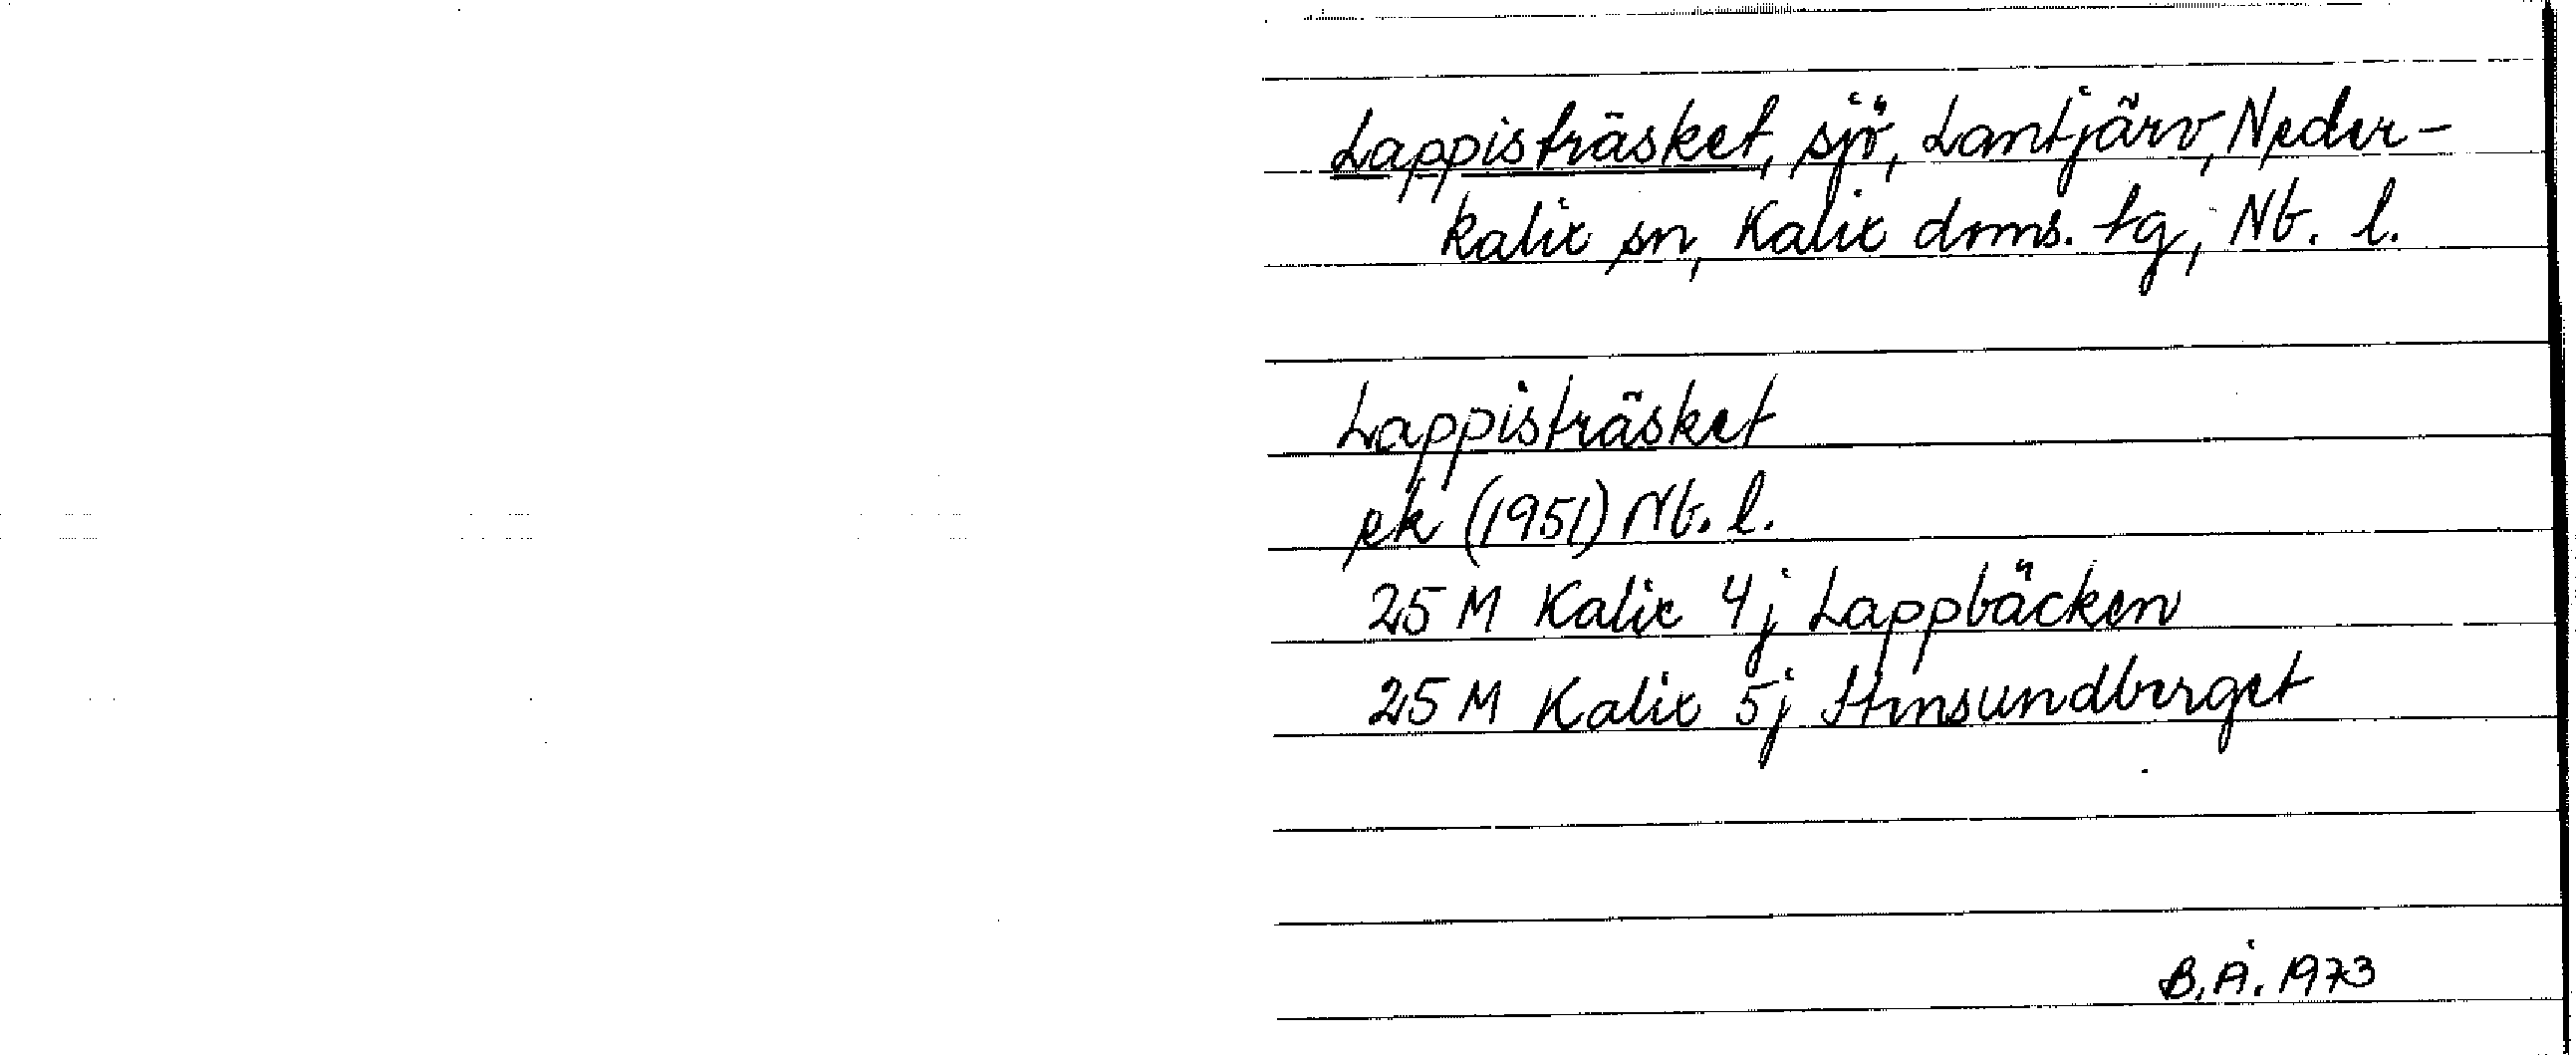 Lappisträsket, sjö, Lantjärv, Neder-
kalix sn, Kalix dms. tg, Nb. l.
Lappisträsket
ek (1951) Nb. l.
25 M Kalix 4j Lappbäcken
25 M Kalix 5j Stensundberget
B.Å. 1973